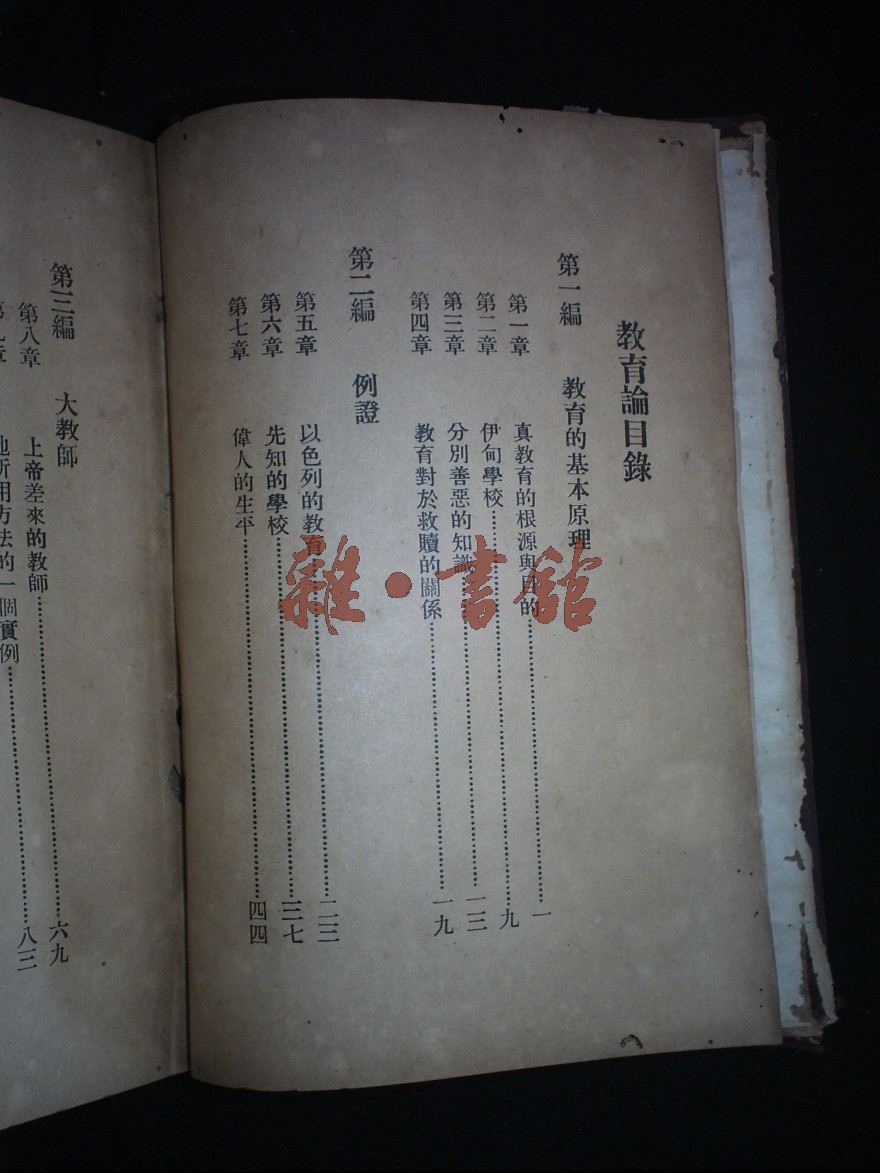 教育論目錄
第一編 教育的基本原理
第一章 真教育的根源與目的……一
第二章 伊甸學校……九
第三章 分別善惡的知識……一三
第四章 教育對於救贖的關係……一九
第二編 例證
第五章 以色列的教育……二三
第六章 先知的學校……三七
第七章 偉人的生平……四四
第三編 大教師
第八章 上帝差來的教師……六九
第九章 他所用方法的一個實例……八三
雜·書館